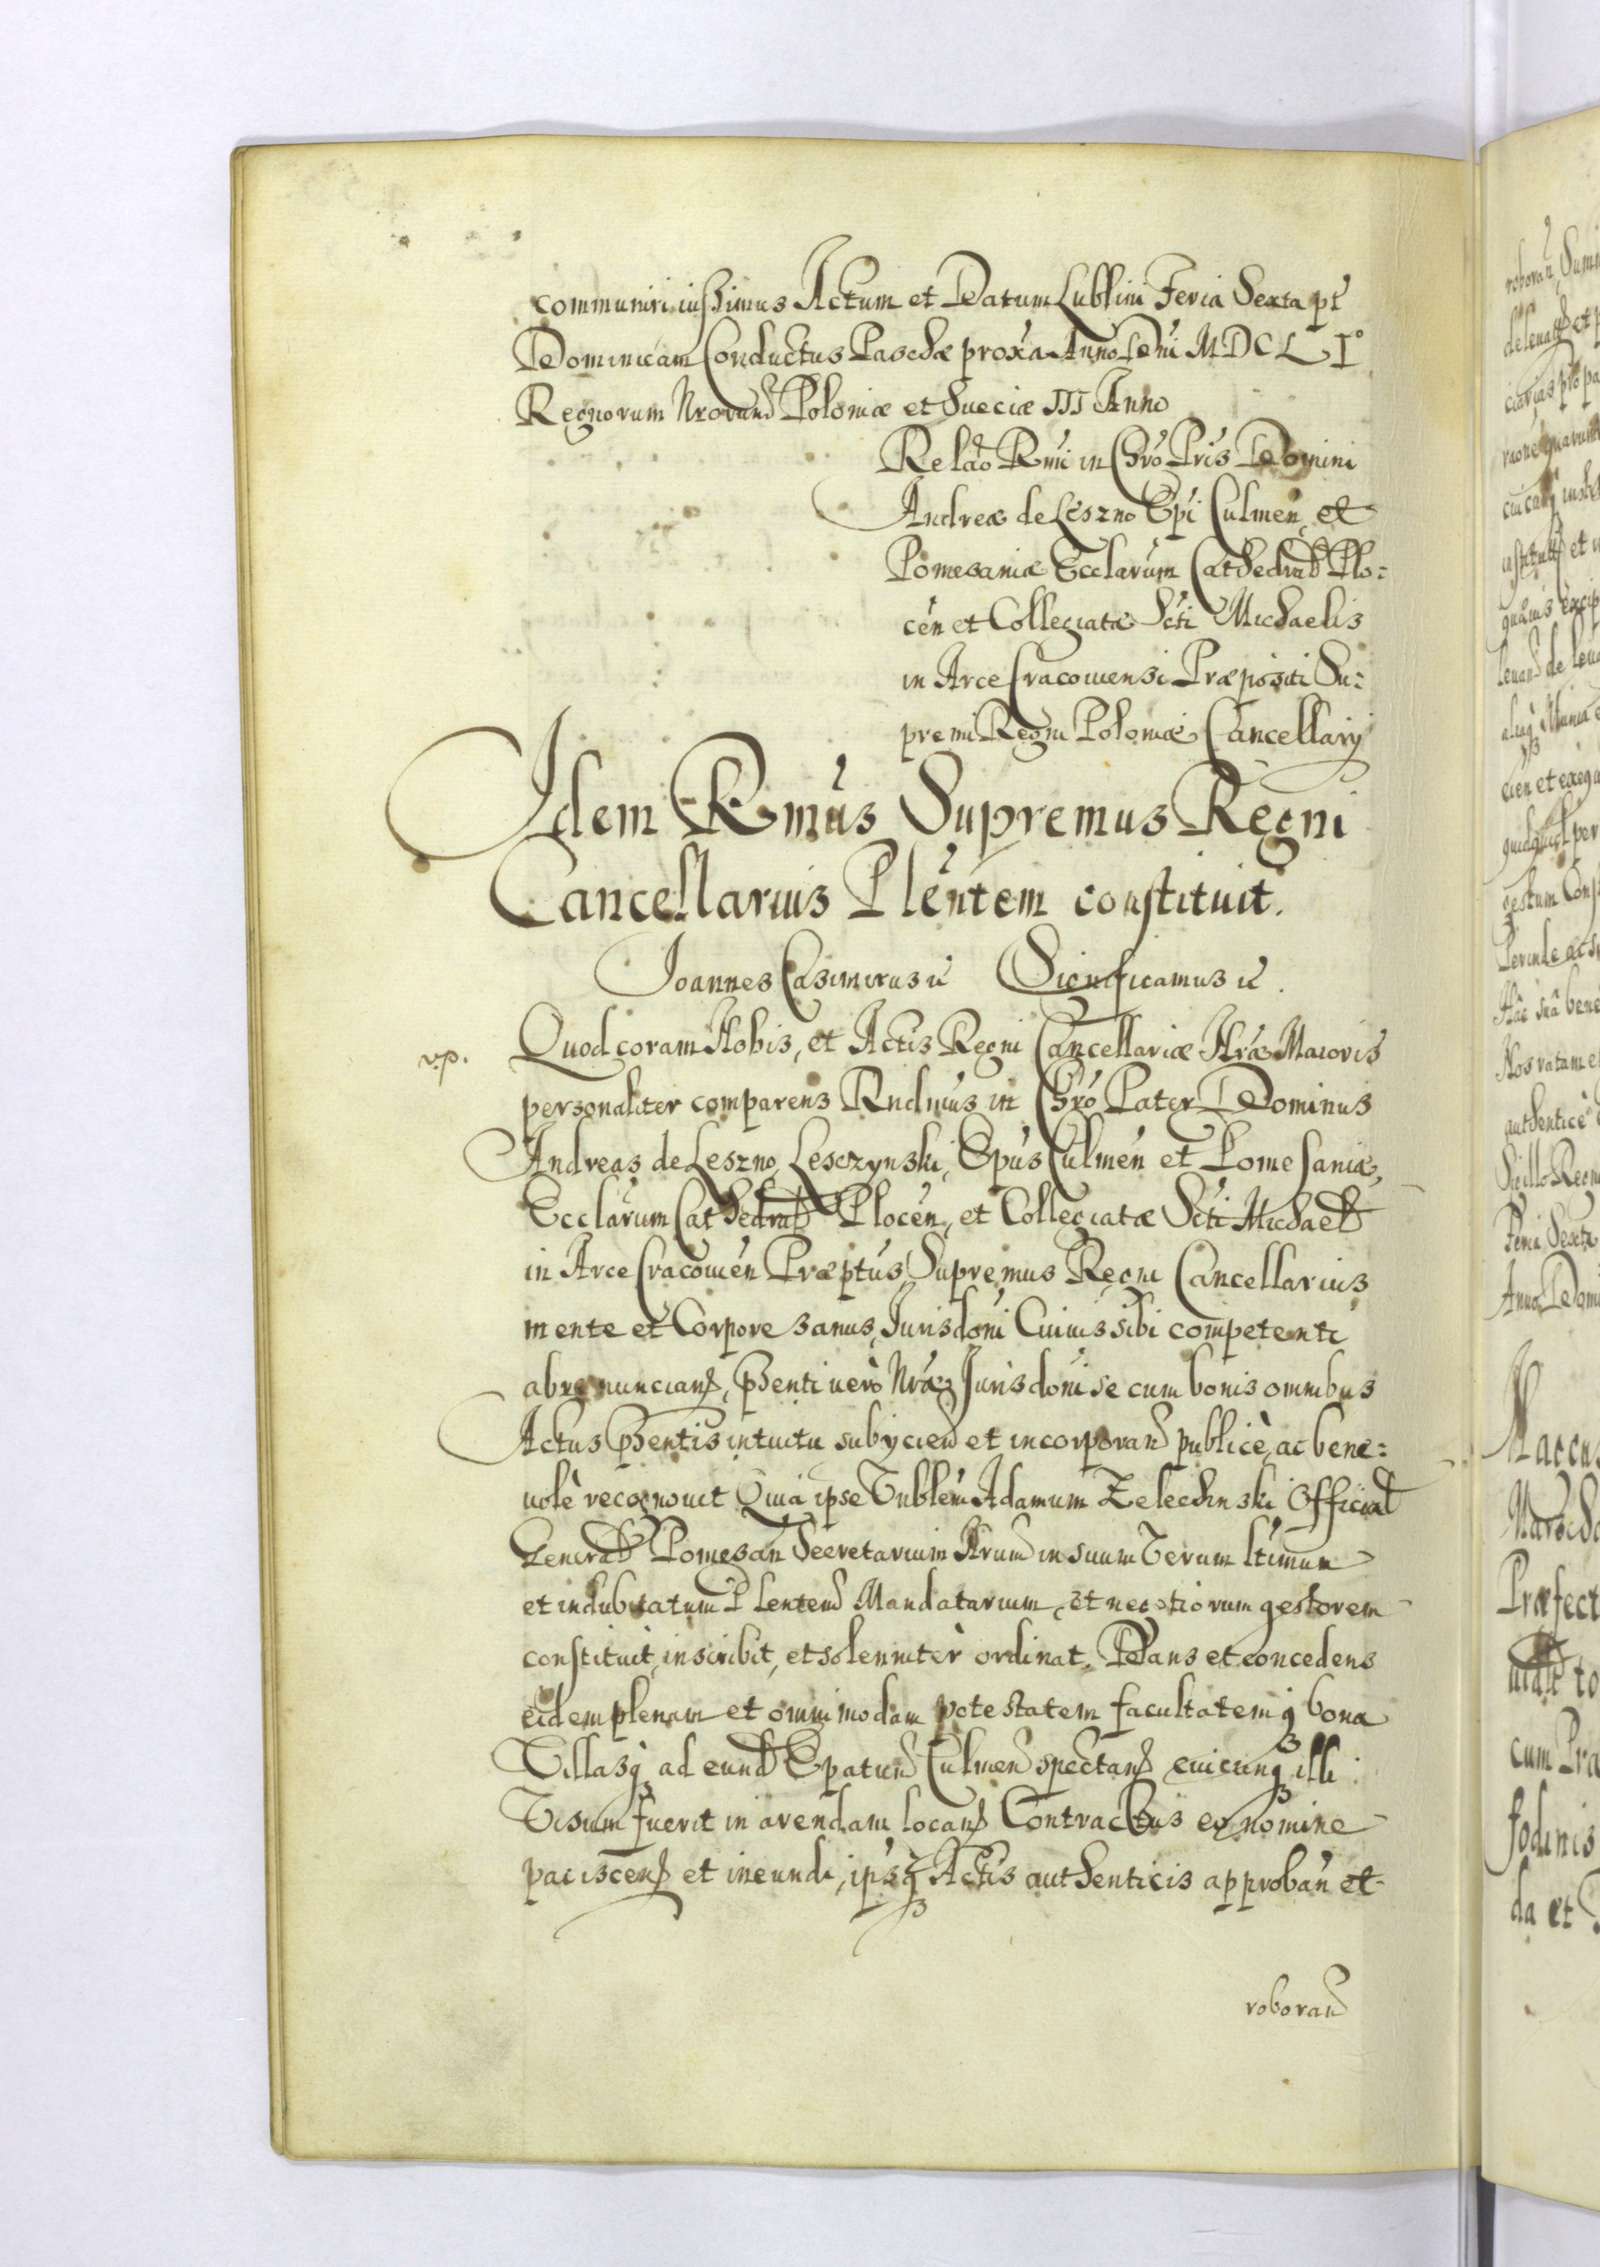 communiri iussimus Actum et Datum Lublini Feria Sexta pt
Dominicam Conductus Paschæ proxa Anno Dni MDCLI°
Regnorum Nrorum Poloniæ et Sueciæ III Anno
Relao Rmi in Chro Pris Domini
Andreæ de Leszno Epi Culmen et
Pomesaniæ Ecclarum Cathedral Plo:
cen et Collegiatæ Scti Michaelis
in Arce Cracouiensi Præpositi Su:
premi Regni Poloniæ Cancellarij
Idem Rmus Supremus Regni
Cancellarius Plentem constituit.
Joannes Casimirus ic Significamus ic.
v.p.
Quod coram Nobis, et Actis Regni Cancellariæ Nræ Maioris
personaliter comparens Rndmus in Chro Pater Dominus
Andreas de Leszno Lesczynski, Epus Culmen et Pomesaniæ,
Ecclarum Cathedral Plocen, et Collegiatæ Scti Michael
in Arce Cracouien Præptus, Supremus Regni Cancellarius
mente et Corpore sanus, Jurisdoni Cuiuis sibi competenti
abrenuncians, psenti uero Nræ Jurisdoni se cum bonis omnibus
Actus psentis intuitu subijcien et incorporan publicè, ac bene:
uolè recognouit Quia ipse Vnblem Adamum Zelechinski Official
General Pomesan Secretarium Nrum in suum Verum ltimum
et indubitatum Plentem Mandatarium, et negotiorum gestorem
constituit, inscribit, et solenniter ordinat. Dans et concedens
eidem plenam et omnimodam potestatem facultatemq bona
Villasq ad eund Epatum Culmen spectans cuicunq illi
Visum fuerit in arendam locand Contractus eo nomine
paciscend et ineundi, ipsq Actis authenticis approban et
roboran